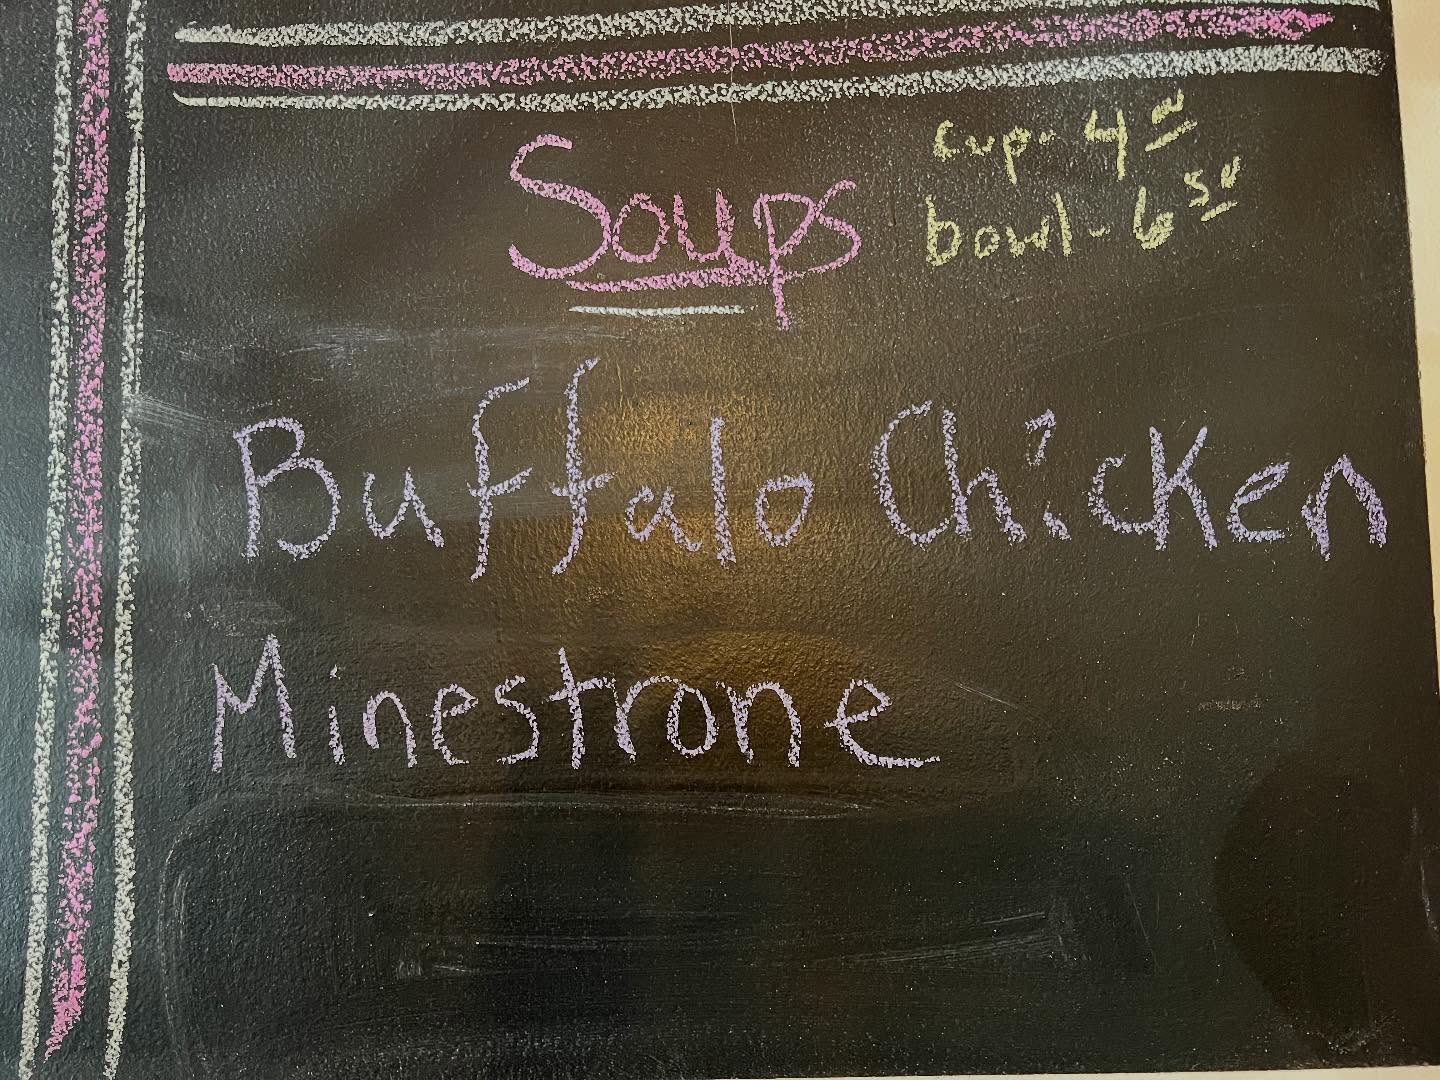 Soups
cup- 4 00
bowl- 6 50
Buffalo Chicken
Minestrone